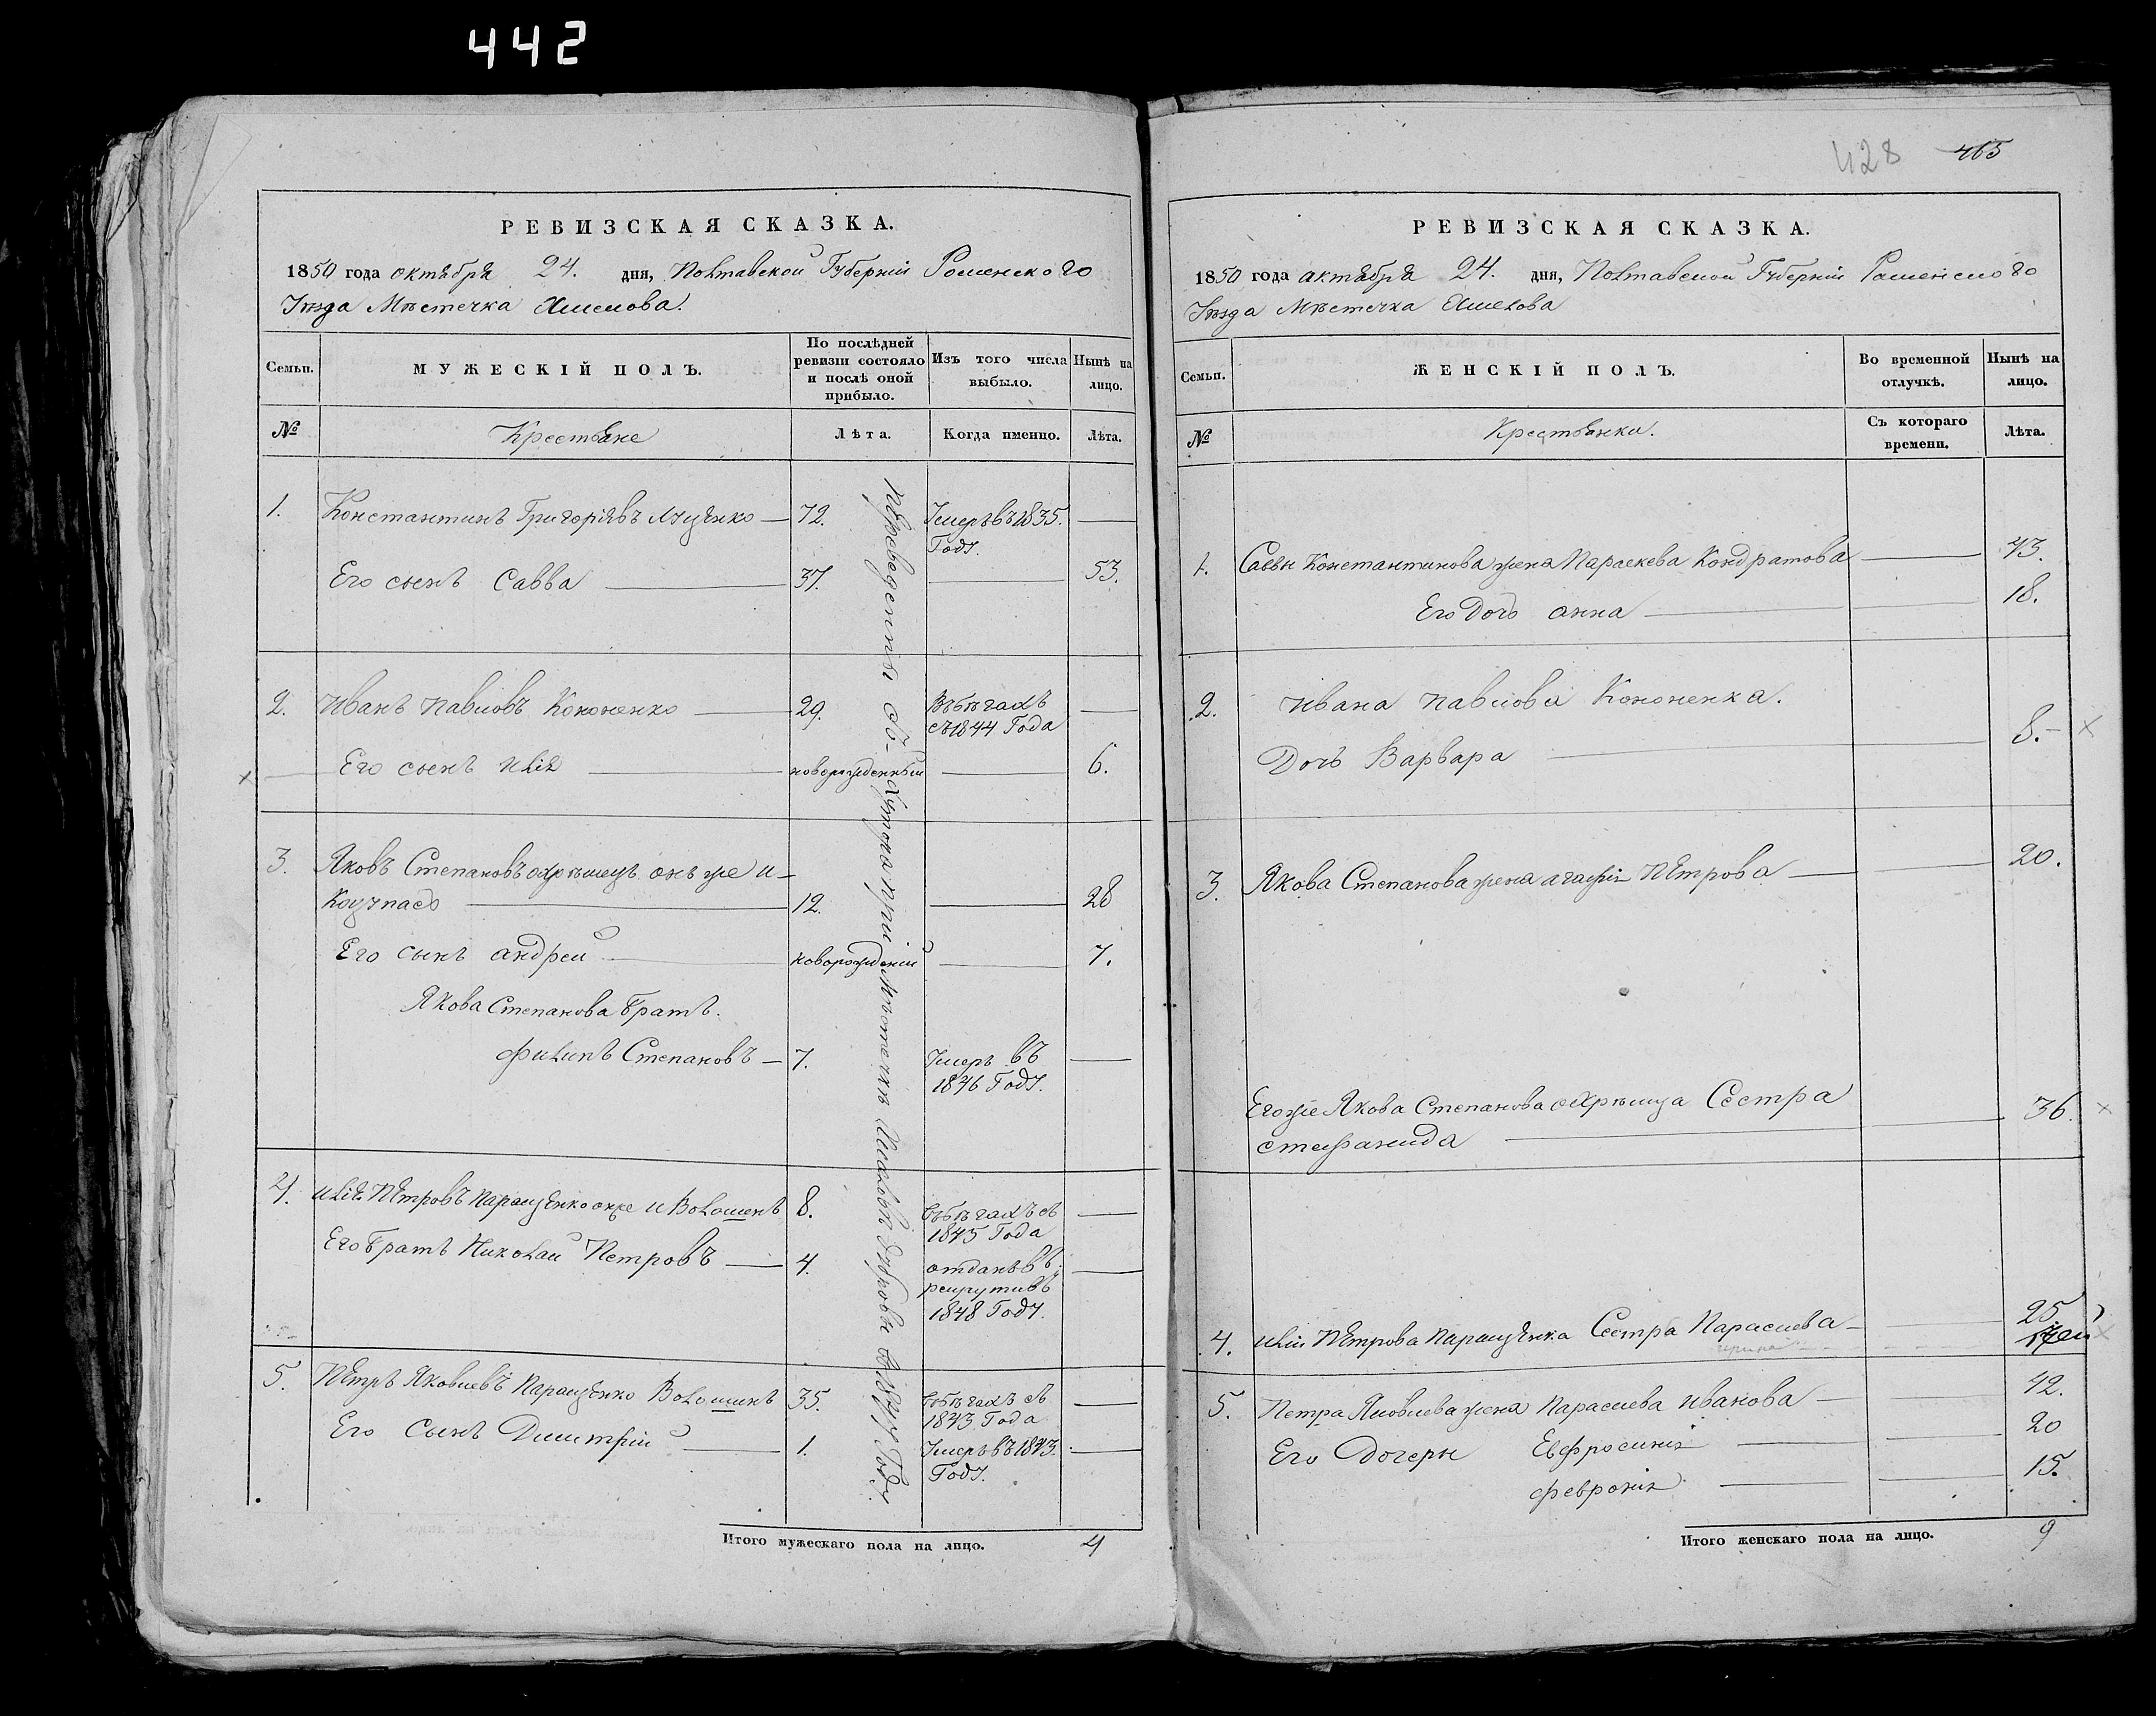 442
РЕВИЗСКАЯ СКАЗКА.
1850 года октября 24. дня, Полтавской Губерніи Роменского
Уезда Мѣстечка Хмелова.
Семьи.
МУЖЕСКІЙ ПОЛЪ.
По послѣдней ревизіи состояло и послѣ оной прибыло.
Изъ того числа выбыло.
Нынѣ на лицо.
№
Крестьяне
Лѣта.
Когда именно.
Лѣта.
1. Константинъ Григоріявъ Луценко — 72. Умеръ въ 1835.
Году.
Его сынъ Савва 37. 53.
2. Иванъ Павловъ Кононенко 29. Въ бѣгахъ
съ 1844 Года
Его сынъ Илія новорожденный 6.
3. Яковъ Степановъ охрѣмецъ онъ же и
12. 28
Его сынъ андрей новорожденій 7.
Якова Степанова Братъ.
Филипъ Степановъ — 7. Умеръ въ
1846 Году.
4. Илія Петровъ Паращенко онже и Волошенъ 8. Въ бѣгахъ съ
1845 Года
Его Братъ Николай Петровъ 4. отданъ въ
рекруты въ
1848 Году.
5. Петръ Яковлевъ Паращенко Волошинъ 35. Въ бѣгахъ съ
1843 Года
Его Сынъ Димитрій 1. Умеръ въ 1843.
Году.
Переведенны съ Хутора при Мѣстечкѣ Дубровы въ Году.
Итого мужескаго пола на лицо. 4
428 465
РЕВИЗСКАЯ СКАЗКА.
1850 года актября 24. дня, Полтавской Губерніи Раменского
Уезда Мѣстечка Хмелова
Семьи.
ЖЕНСКІЙ ПОЛЪ.
Во временной отлучкѣ.
Нынѣ на лицо.
№
Крестьянки.
Съ котораго времени.
Лѣта.
1. Саввы Константинова жена Параскева Кондратова 43.
Его Дочь анна 18.
2. Ивана Павлова Кононенка.
Дочь Варвара 8.
3. Якова Степанова жена агафія Петрова 20.
Его же Якова Степанова охрѣмца Сестра 36.
стефанида
4. Иліи Петрова Паращенка Сестра Параскева 25
5. Петра Яковлева жена Параскева Иванова 42.
Его Дочери Евфросинія 20
Февронія 15.
Итого женскаго пола на лицо. 9